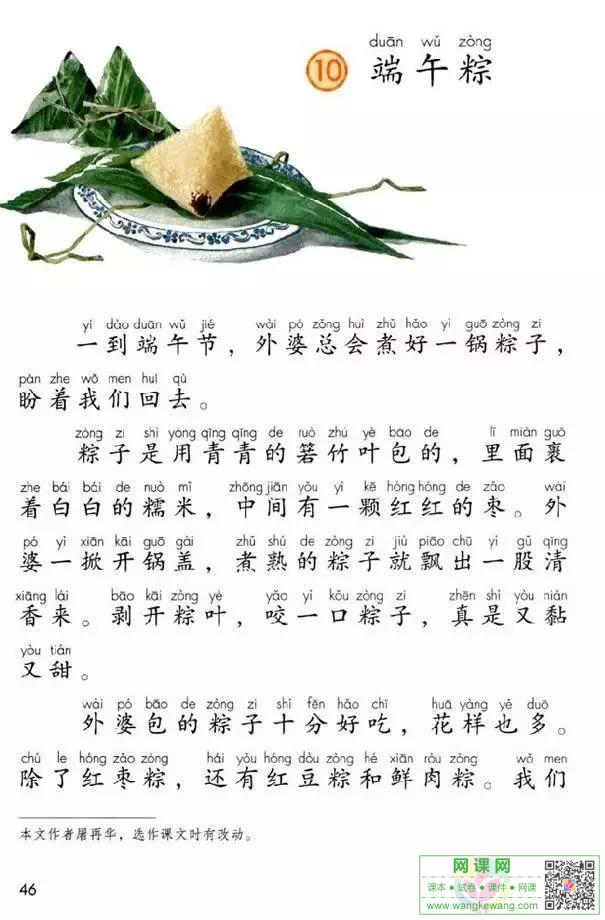 duān wǔ zòng
10 端午粽
yí dào duān wǔ jié wài pó zǒng huì zhǔ hǎo yì guō zòng zi
一到端午节，外婆总会煮好一锅粽子，
pàn zhe wǒ men huí qù
盼着我们回去。
zòng zi shì yòng qīng qīng de ruò zhú yè bāo de lǐ miàn guǒ
粽子是用青青的箬竹叶包的，里面裹
zhe bái bái de nuò mǐ zhōng jiān yǒu yì kē hóng hóng de zǎo wài
着白白的糯米，中间有一颗红红的枣。外
pó yì xiān kāi guō gài zhǔ shú de zòng zi jiù piāo chū yì gǔ qīng
婆一掀开锅盖，煮熟的粽子就飘出一股清
xiāng lái bāo kāi zòng yè yǎo yì kǒu zòng zi zhēn shì yòu nián
香来。剥开粽叶，咬一口粽子，真是又黏
yòu tián
又甜。
wài pó bāo de zòng zi shí fēn hǎo chī huā yàng yě duō
外婆包的粽子十分好吃，花样也多。
chú le hóng zǎo zòng hái yǒu hóng dòu zòng hé xiān ròu zòng wǒ men
除了红枣粽，还有红豆粽和鲜肉粽。我们
本文作者屠再华，选作课文时有改动。
46
网课网
课本·试卷·课件·网课
www.wangkewang.com